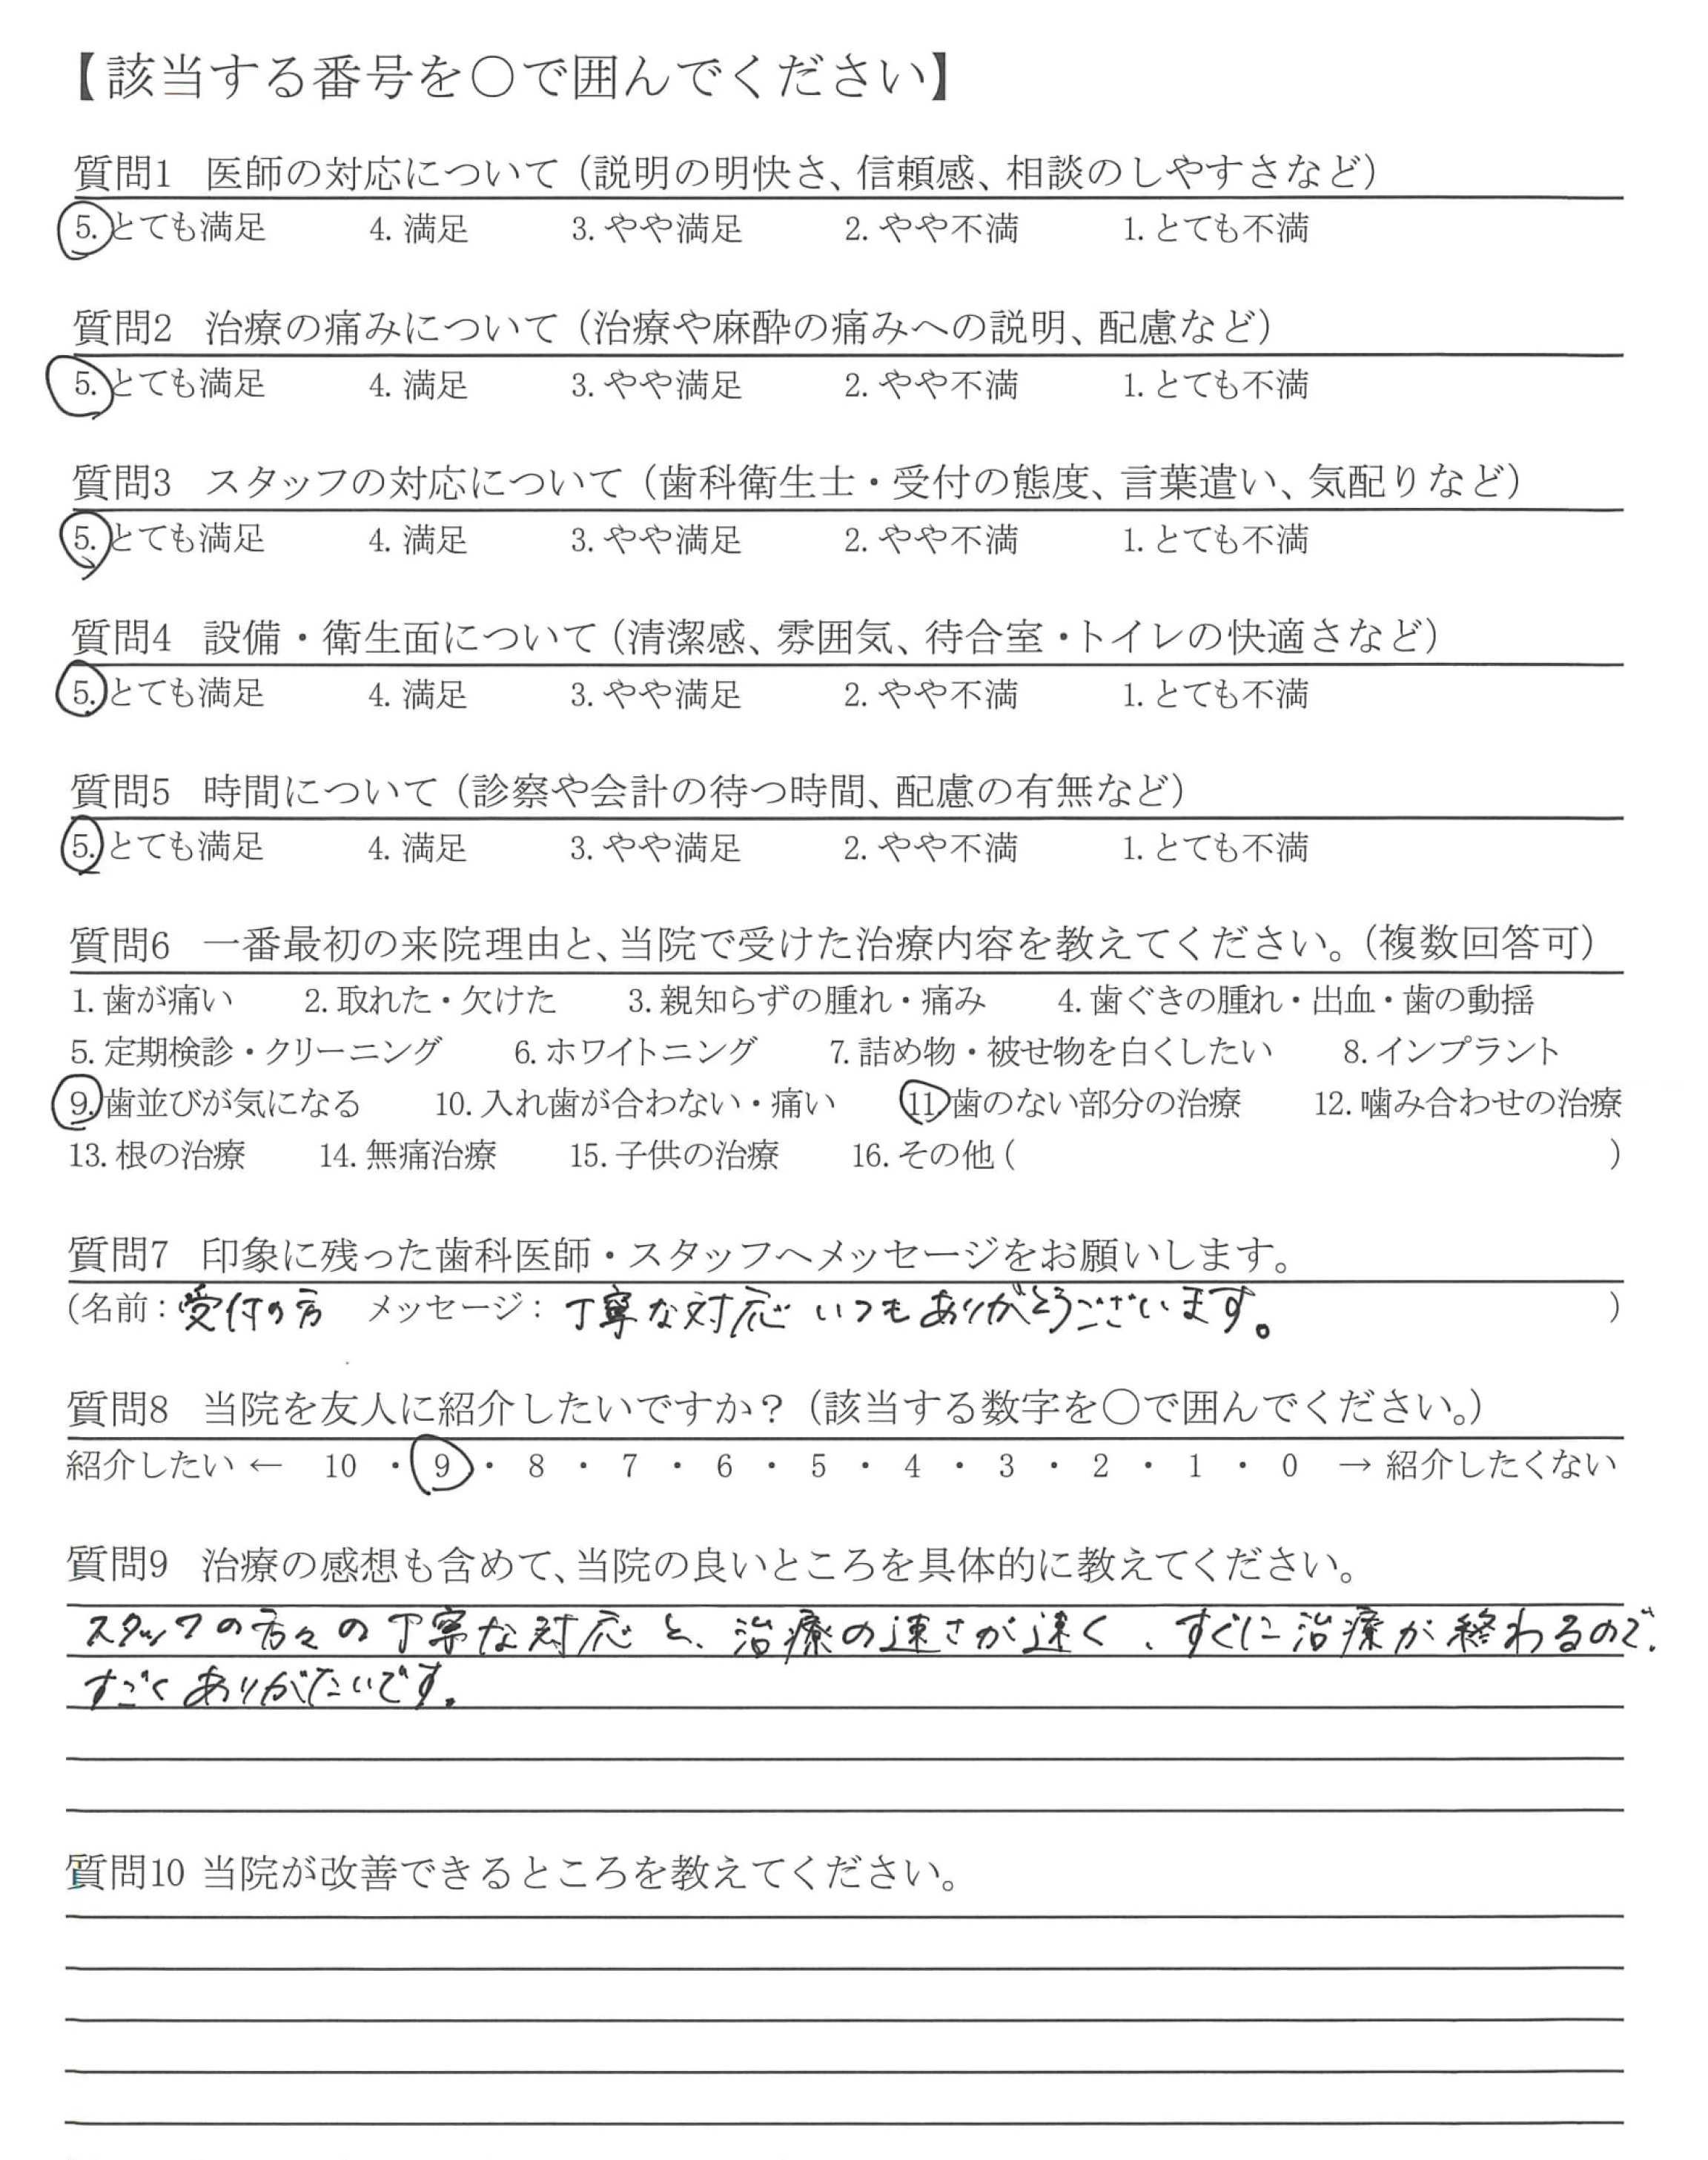 【該当する番号を○で囲んでください】
質問1 医師の対応について（説明の明快さ、信頼感、相談のしやすさなど）
5. とても満足 4. 満足 3. やや満足 2. やや不満 1. とても不満
質問2 治療の痛みについて（治療や麻酔の痛みへの説明、配慮など）
5. とても満足 4. 満足 3. やや満足 2. やや不満 1. とても不満
質問3 スタッフの対応について（歯科衛生士・受付の態度、言葉遣い、気配りなど）
5. とても満足 4. 満足 3. やや満足 2. やや不満 1. とても不満
質問4 設備・衛生面について（清潔感、雰囲気、待合室・トイレの快適さなど）
5. とても満足 4. 満足 3. やや満足 2. やや不満 1. とても不満
質問5 時間について（診察や会計の待つ時間、配慮の有無など）
5. とても満足 4. 満足 3. やや満足 2. やや不満 1. とても不満
質問6 一番最初の来院理由と、当院で受けた治療内容を教えてください。（複数回答可）
1. 歯が痛い 2. 取れた・欠けた 3. 親知らずの腫れ・痛み 4. 歯ぐきの腫れ・出血・歯の動揺
5. 定期検診・クリーニング 6. ホワイトニング 7. 詰め物・被せ物を白くしたい 8. インプラント
9. 歯並びが気になる 10. 入れ歯が合わない・痛い 11. 歯のない部分の治療 12. 噛み合わせの治療
13. 根の治療 14. 無痛治療 15. 子供の治療 16. その他 ( )
質問7 印象に残った歯科医師・スタッフへメッセージをお願いします。
(名前：受付の方 メッセージ：丁寧な対応いつもありがとうございます。 )
質問8 当院を友人に紹介したいですか？（該当する数字を○で囲んでください。）
紹介したい ← 10 ・ 9 ・ 8 ・ 7 ・ 6 ・ 5 ・ 4 ・ 3 ・ 2 ・ 1 ・ 0 → 紹介したくない
質問9 治療の感想も含めて、当院の良いところを具体的に教えてください。
スタッフの方々の丁寧な対応と、治療の速さが速く、すぐに治療が終わるので、
すごくありがたいです。
質問10 当院が改善できるところを教えてください。